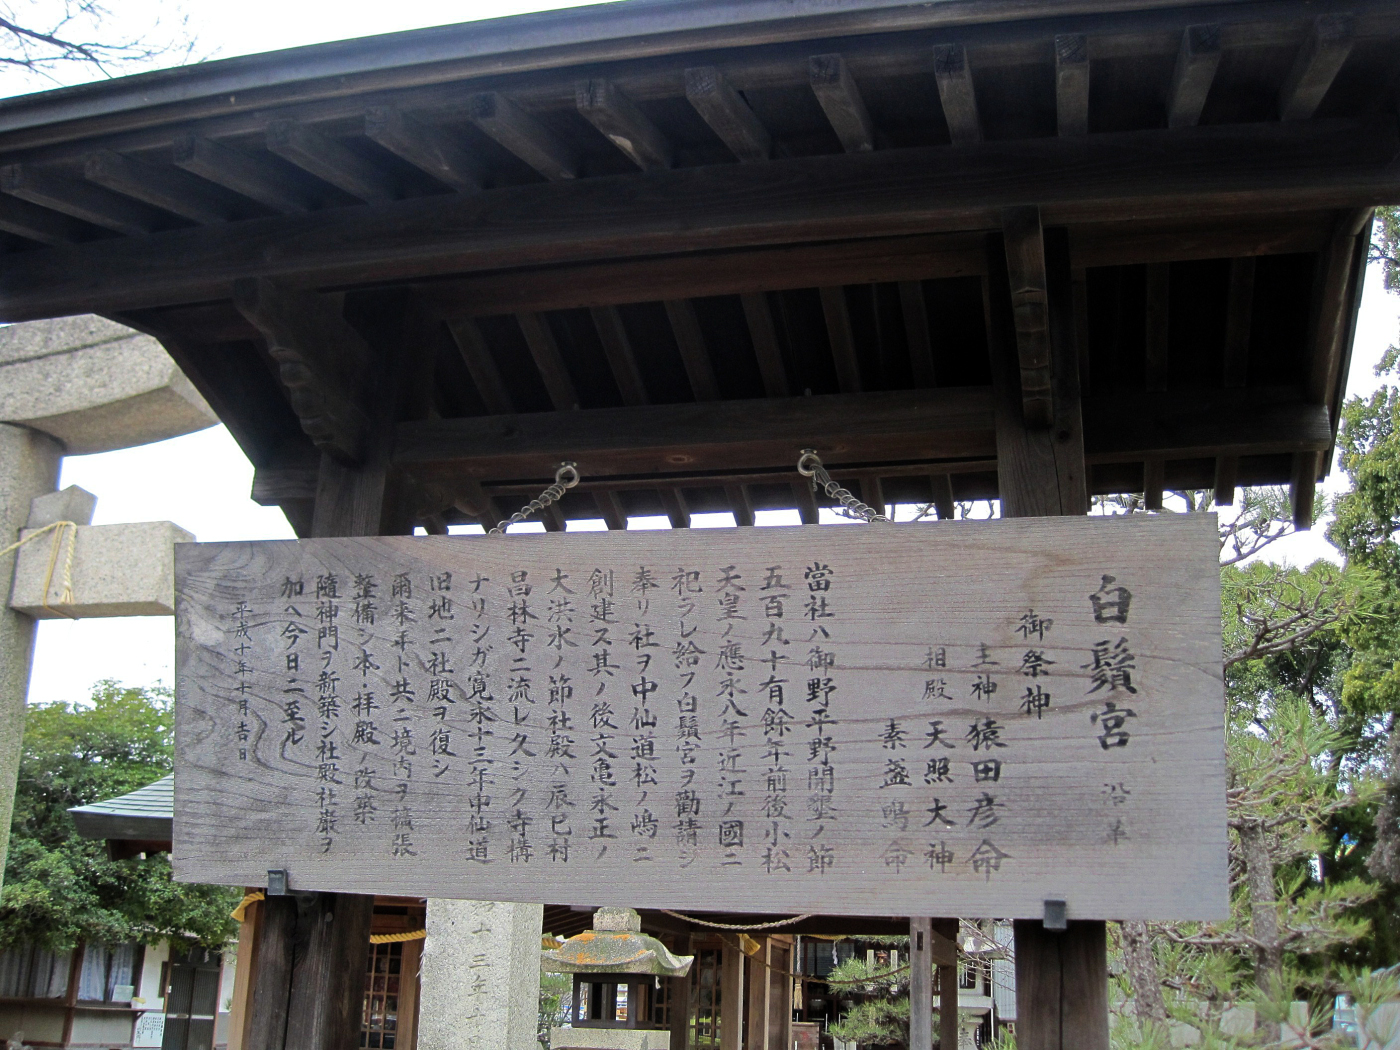 白鬚宮 沿革
御祭神
主神 猿田彦命
相殿 天照大神
素盞鳴命
當社ハ御野平野開墾ノ節
五百九十有餘年前後小松
天皇ノ應永八年近江ノ國ニ
祀ラレ給フ白鬚宮ヲ勸請シ
奉リ社ヲ中仙道松ノ嶋ニ
創建ス其ノ後文亀永正ノ
大洪水ノ節社殿ハ辰巳村
昌林寺ニ流レ久シク寺構
ナリシガ寛永十三年中仙道
旧地ニ社殿ヲ復シ
爾来年ト共ニ境内ヲ擴張
整備シ本拝殿ノ改築
隨神門ヲ新築シ社殿社巌ヲ
加ヘ今日ニ至ル
平成十年十月吉日
十三年十